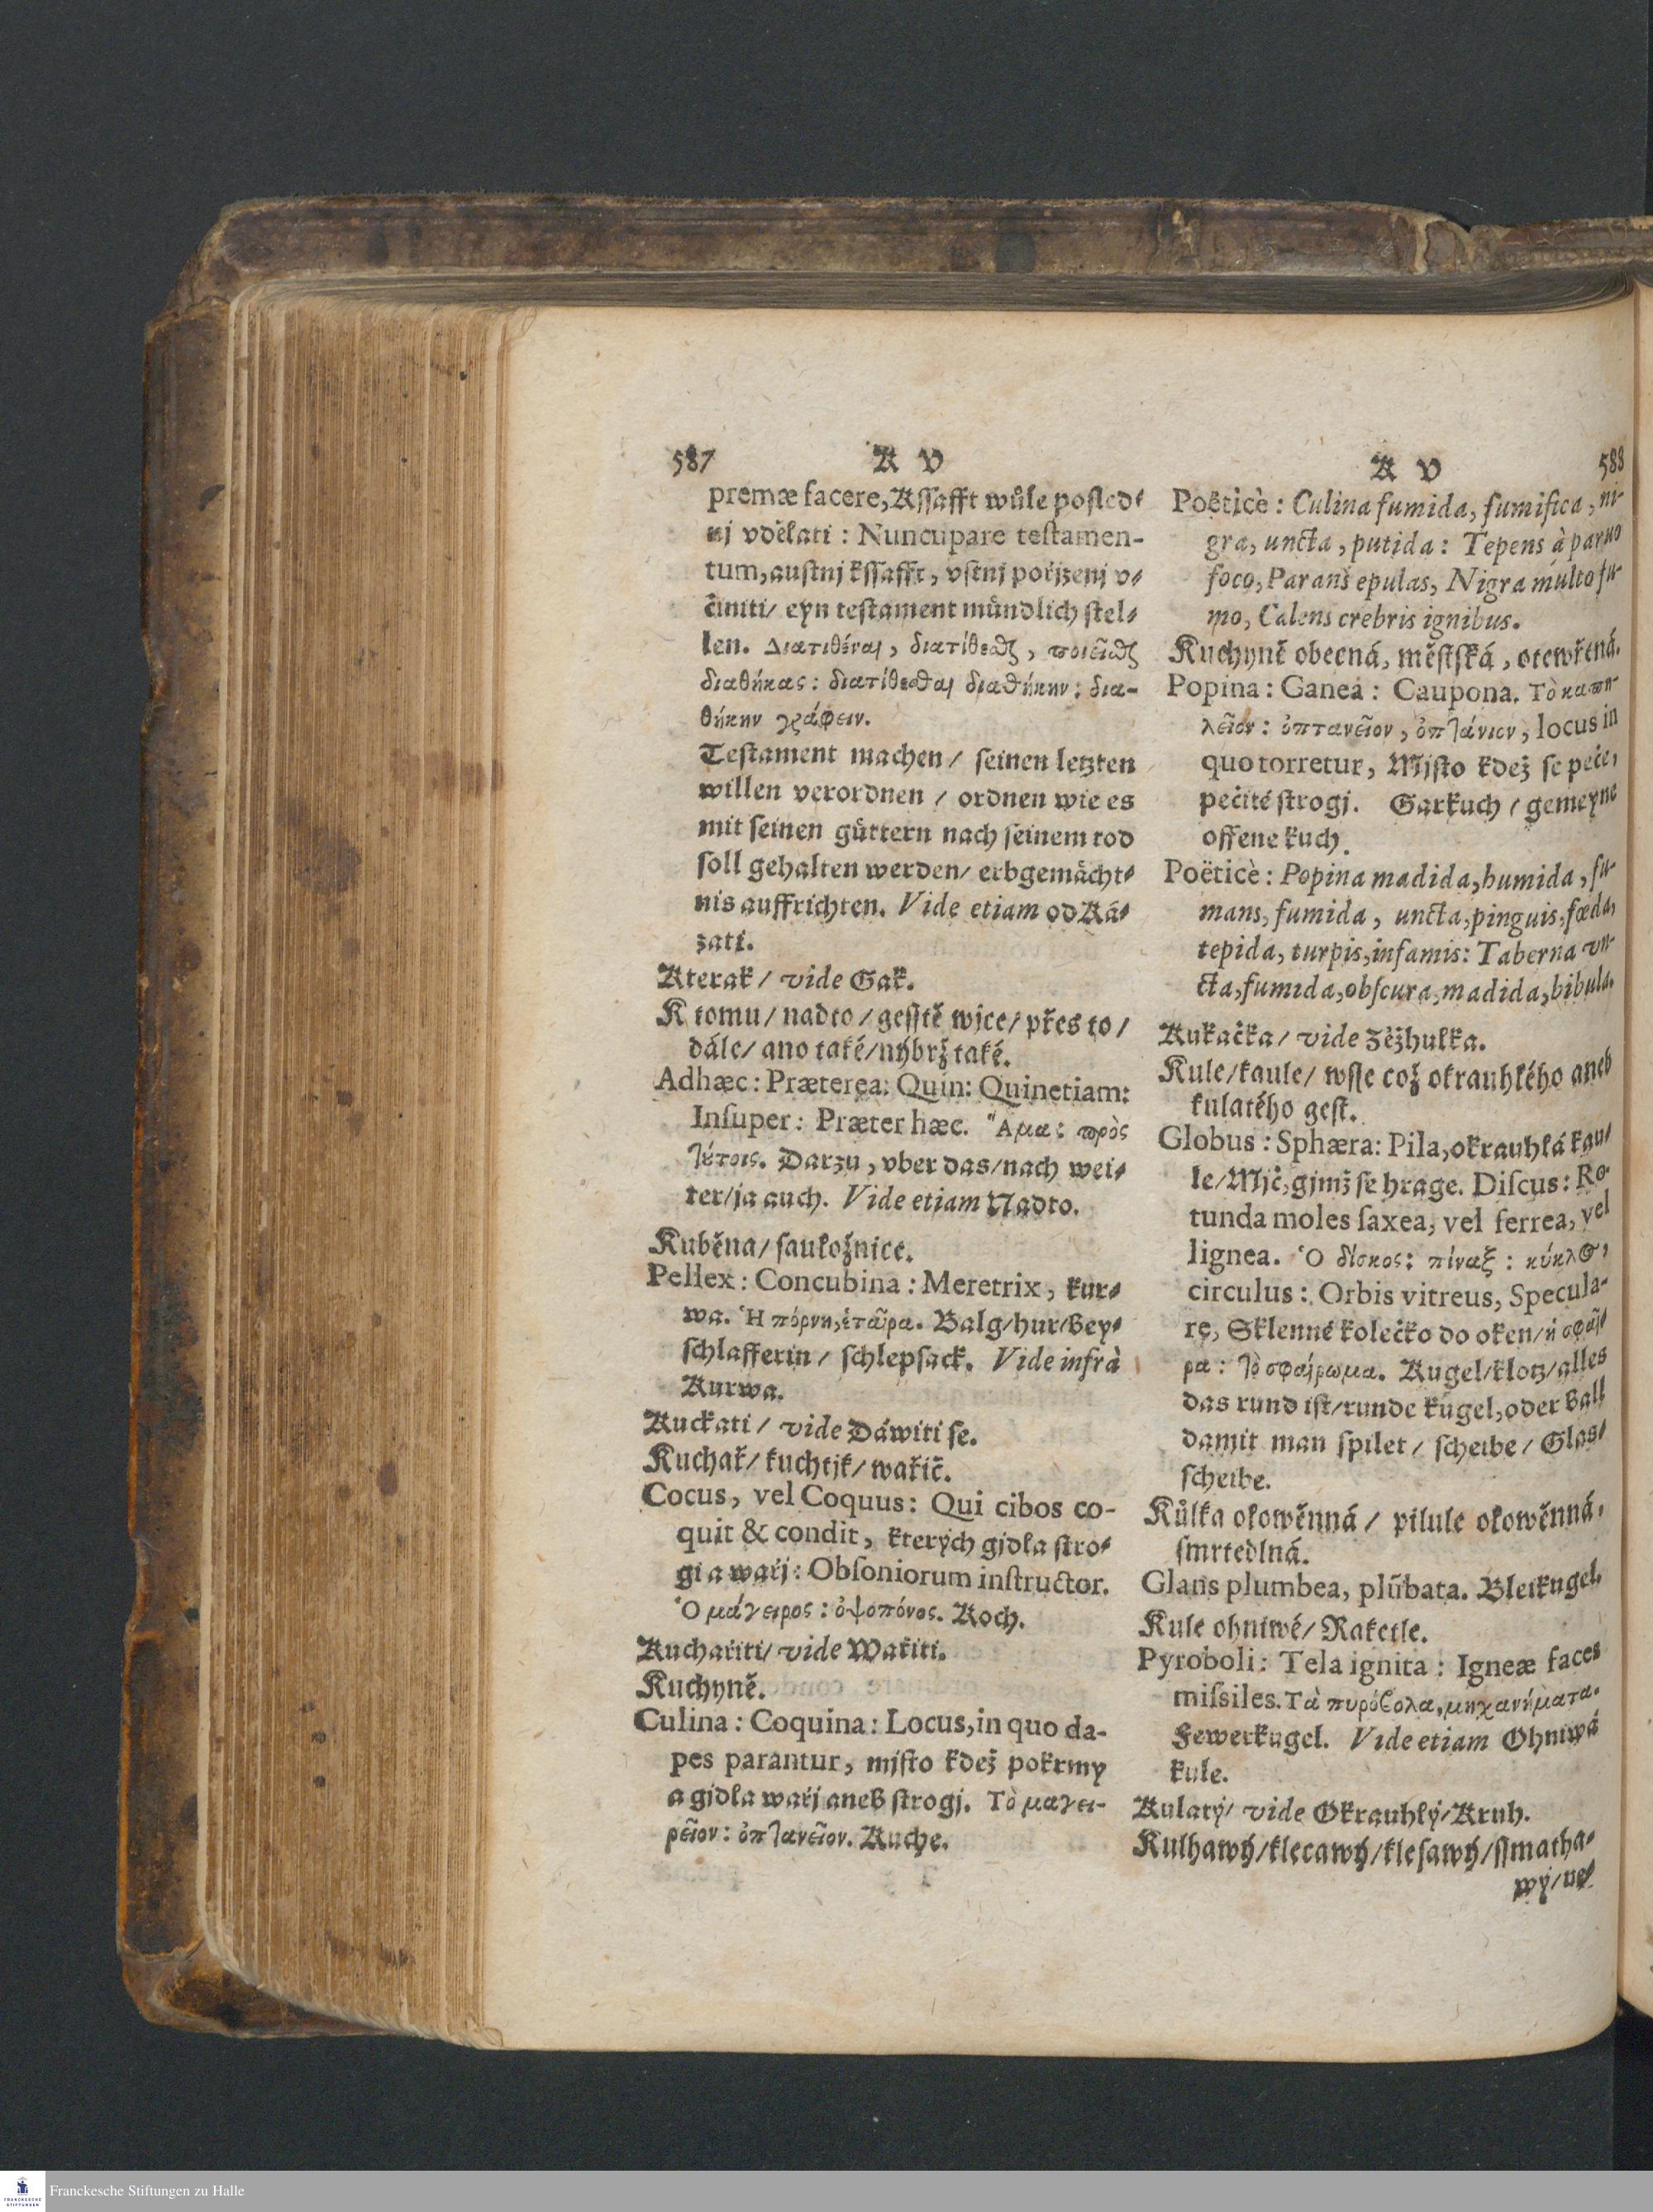 587 K V
premæ facere, Kſſafft wůle poſled⸗
nj vděłati : Nuncupare teſtamen-
tum, auſtnj kſſafft, vſtnj pořjzenj v⸗
činiti/ eyn teſtament mündlich ſtel⸗
len. Διατιθέναι, διατίθεσθαι, ποιεῖσθαι
διαθήκας : διατίθεσθαι διαθήκην : δια-
θήκην γράφειν.
Teſtament machen/ ſeinen letzten
willen verordnen / ordnen wie es
mit ſeinen güttern nach ſeinem tod
ſoll gehalten werden/ erbgemächt⸗
nis auffrichten. Vide etiam od Ká⸗
zati.
Kterak / vide Gak.
K tomu / nadto / geſſtě wjce/ přes to /
dále/ ano také/ nýbrž také.
Adhæc : Præterea: Quin: Quinetiam:
Inſuper : Præter hæc. Ἅμα : πρὸς
τούτοις. Darzu, vber das/ nach wei⸗
ter/ ja auch. Vide etiam Nadto.
Kuběna/ ſaukožnice.
Pellex : Concubina : Meretrix, kur⸗
wa. Ἡ πόρνη, ἑταῖρα. Balg/ hur/ Bey⸗
ſchlafferin/ ſchlepſack. Vide infrà
Kurwa.
Kuckati / vide Dáwiti ſe.
Kuchař/ kuchtjk/ wařič.
Cocus, vel Coquus : Qui cibos co-
quit & condit, kterých gjdła ſtro⸗
gi a wařj : Obſoniorum inſtructor.
Ὁ μάγειρος : ὀψοπόνος. Koch.
Kuchařiti/ vide Wařiti.
Kuchyně.
Culina : Coquina : Locus, in quo da-
pes parantur, mjſto kdež pokrmy
a gjdła wařj aneb ſtrogj. Τὸ μαγει-
ρεῖον : ὀπτανεῖον. Kuche.
K V 588
Poëticè : Culina fumida, fumifica, ni-
gra, uncta, putida : Tepens à paruo
foco, Parans epulas, Nigra multo fu-
mo, Calens crebris ignibus.
Kuchyně obecná, měſtſká, otewřená.
Popina : Ganea : Caupona. Τὸ καπη-
λεῖον : ὀπτανεῖον, ὀπτάνιον, locus in
quo torretur, Mjſto kdež ſe peče,
pečité ſtrogj. Garkuch / gemeyne
offene kuch.
Poëticè : Popina madida, humida, fu-
mans, fumida, uncta, pinguis, fœda,
tepida, turpis, infamis : Taberna vn-
cta, fumida, obſcura, madida, bibula.
Kukačka/ vide Zěžhulka.
Kule/ kaule/ wſſe což okrauhłého aneb
kulatého geſt.
Globus : Sphæra : Pila, okrauhłá kau⸗
le/ Mjč, gjmž ſe hrage. Diſcus : Ro-
tunda moles ſaxea, vel ferrea, vel
lignea. Ὁ δίσκος : πίναξ : κύκλος,
circulus : Orbis vitreus, Specula-
re, Sklenné kolečko do oken/ ἡ σφαῖ-
ρα : τὸ σφαίρωμα. Kugel/ klotz/ alles
das rund iſt/ runde kugel, oder Ball
damit man ſpilet/ ſcheibe/ Glas⸗
ſcheibe.
Kůlka ołowěnná / pilule ołowěnná,
ſmrtedlná.
Glans plumbea, plūbata. Bleikugel.
Kule ohniwé/ Raketle.
Pyroboli : Tela ignita : Igneæ faces
miſsiles. Τὰ πυρόβολα, μηχανήματα.
Fewerkugel. Vide etiam Ohniwá
kule.
Kulatý/ vide Okrauhlý/ Kruh.
Kulhawý/ klecawý/ kleſawý/ ſſmatha⸗
wý/ ne⸗
Franckesche Stiftungen zu Halle
FRANCKESCHE
STIFTUNGEN